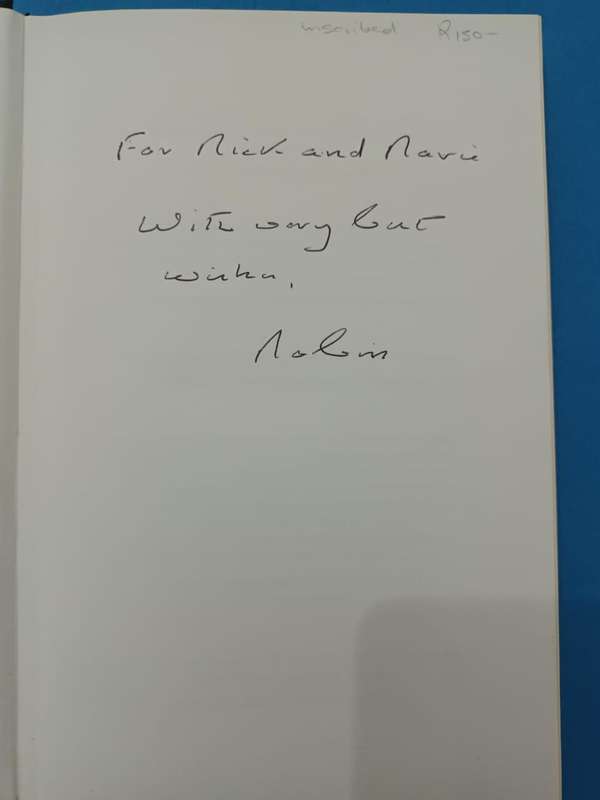 inscribed R150-
For and Marie
With very best
wishes,
Robin